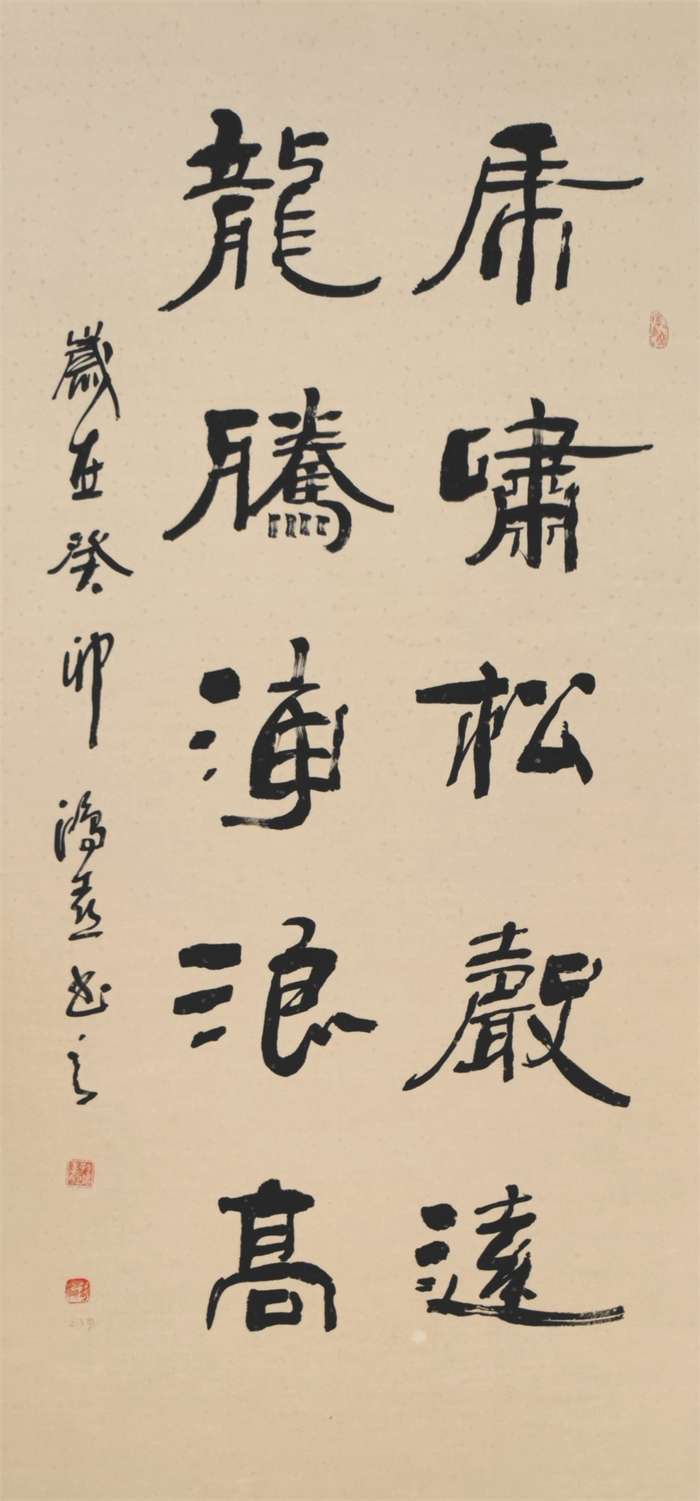 虎嘯松聲遠
龍騰海浪高
歲在癸卯鴻書之